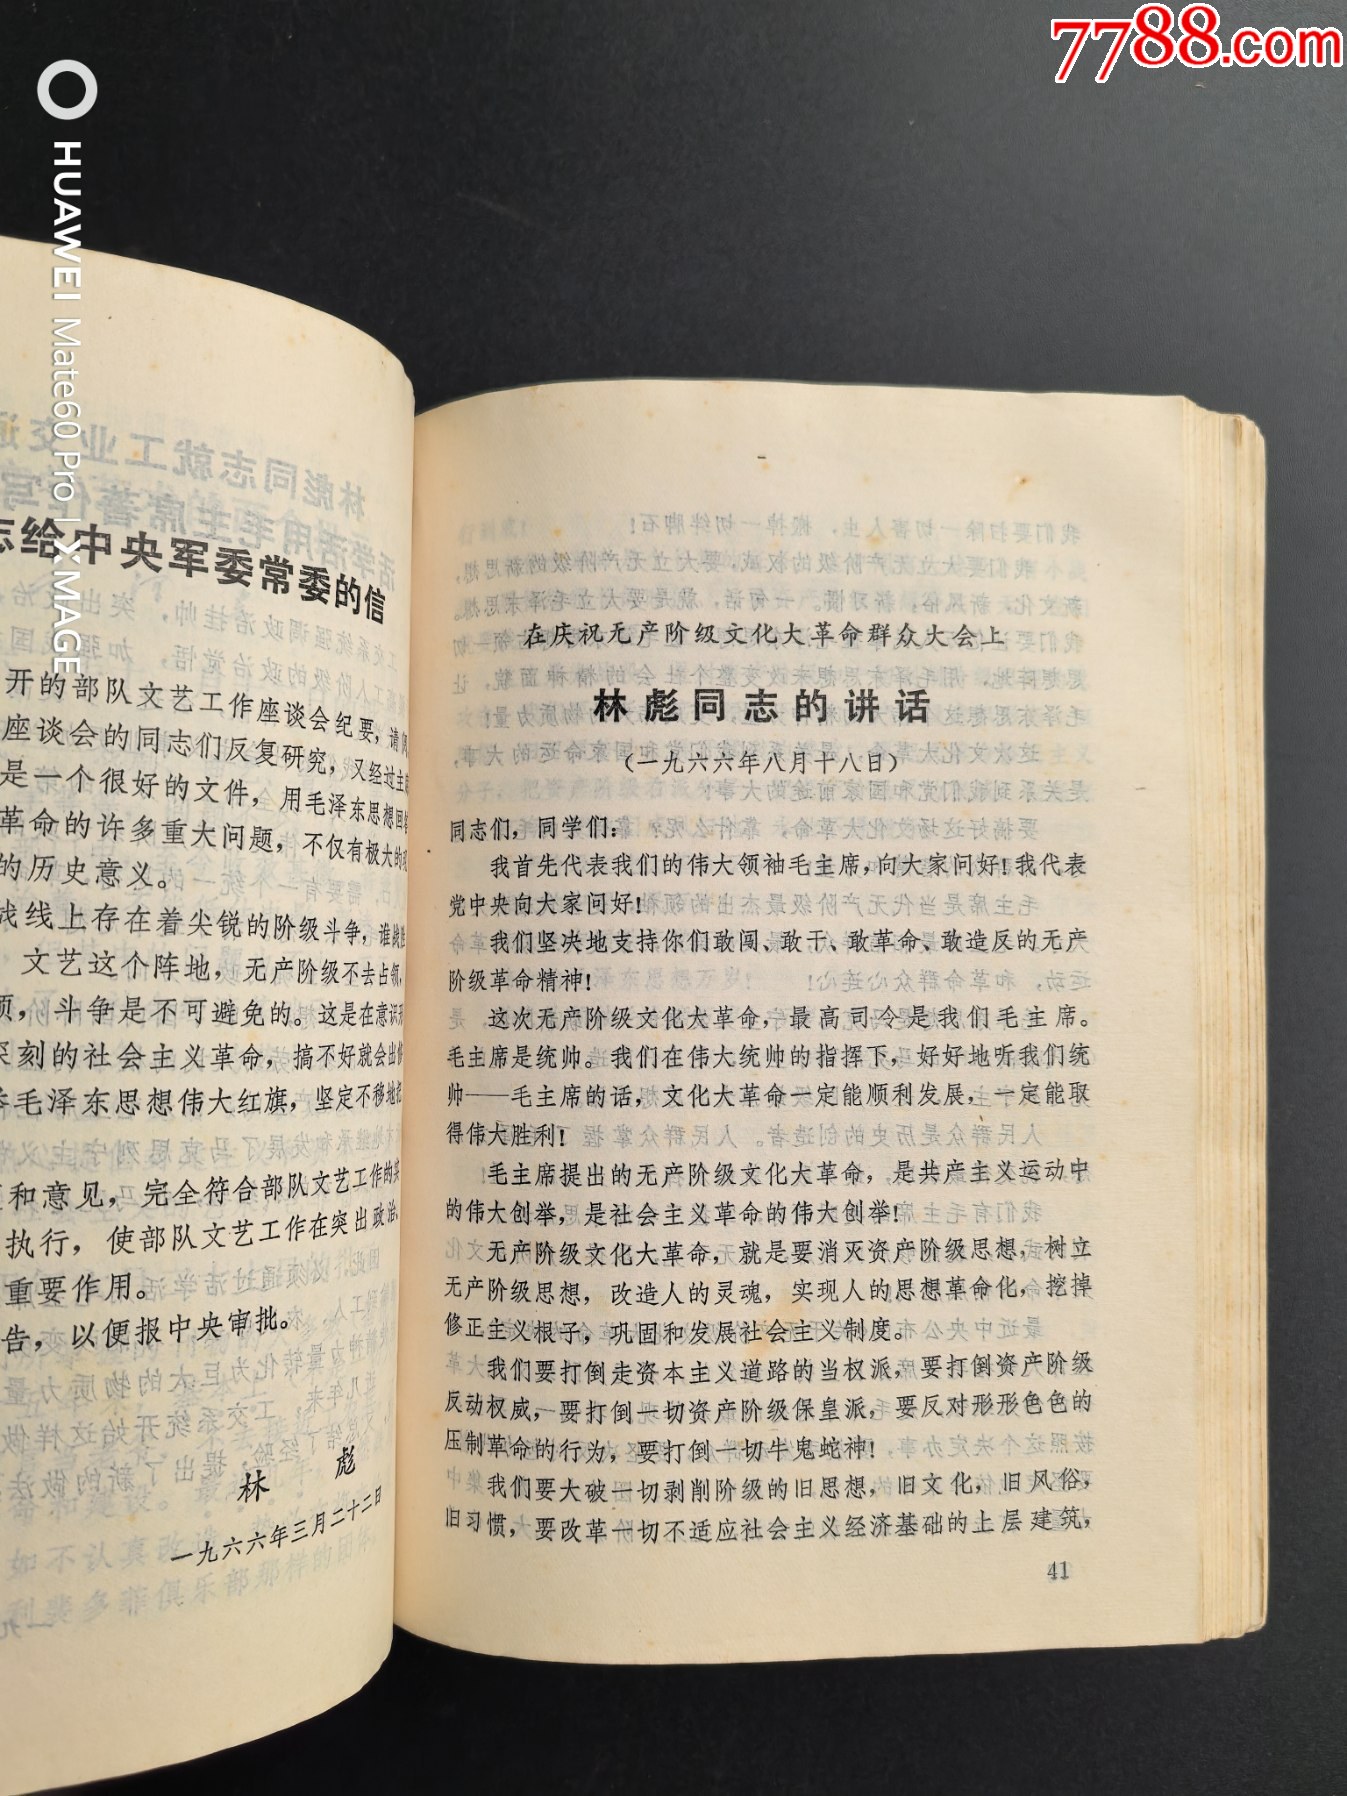 7788.com
HUAWEI Mate60 Pro | XMAGE
志给中央军委常委的信
开的部队文艺工作座谈会纪要，请
座谈会的同志们反复研究，又经过主
是一个很好的文件，用毛泽东思想回
革命的许多重大问题，不仅有极大的
的历史意义。
战线上存在着尖锐的阶级斗争，谁战胜
文艺这个阵地，无产阶级不去占领，
斗争是不可避免的。这是在意识形
深刻的社会主义革命，搞不好就会出修
毛泽东思想伟大红旗，坚定不移地把
和意见，完全符合部队文艺工作的实
执行，使部队文艺工作在突出政治、
重要作用。
告，以便报中央审批。
林 彪
一九六六年三月二十二日
在庆祝无产阶级文化大革命群众大会上
林彪同志的讲话
（一九六六年八月十八日）
同志们，同学们：
我首先代表我们的伟大领袖毛主席，向大家问好！我代表
党中央向大家问好！
我们坚决地支持你们敢闯、敢干、敢革命、敢造反的无产
阶级革命精神！
这次无产阶级文化大革命，最高司令是我们毛主席。
毛主席是统帅。我们在伟大统帅的指挥下，好好地听我们统
帅——毛主席的话，文化大革命一定能顺利发展，一定能取
得伟大胜利！
毛主席提出的无产阶级文化大革命，是共产主义运动中
的伟大创举，是社会主义革命的伟大创举！
无产阶级文化大革命，就是要消灭资产阶级思想，树立
无产阶级思想，改造人的灵魂，实现人的思想革命化，挖掉
修正主义根子，巩固和发展社会主义制度。
我们要打倒走资本主义道路的当权派，要打倒资产阶级
反动权威，要打倒一切资产阶级保皇派，要反对形形色色的
压制革命的行为，要打倒一切牛鬼蛇神！
我们要大破一切剥削阶级的旧思想，旧文化，旧风俗，
旧习惯，要改革一切不适应社会主义经济基础的上层建筑，
41